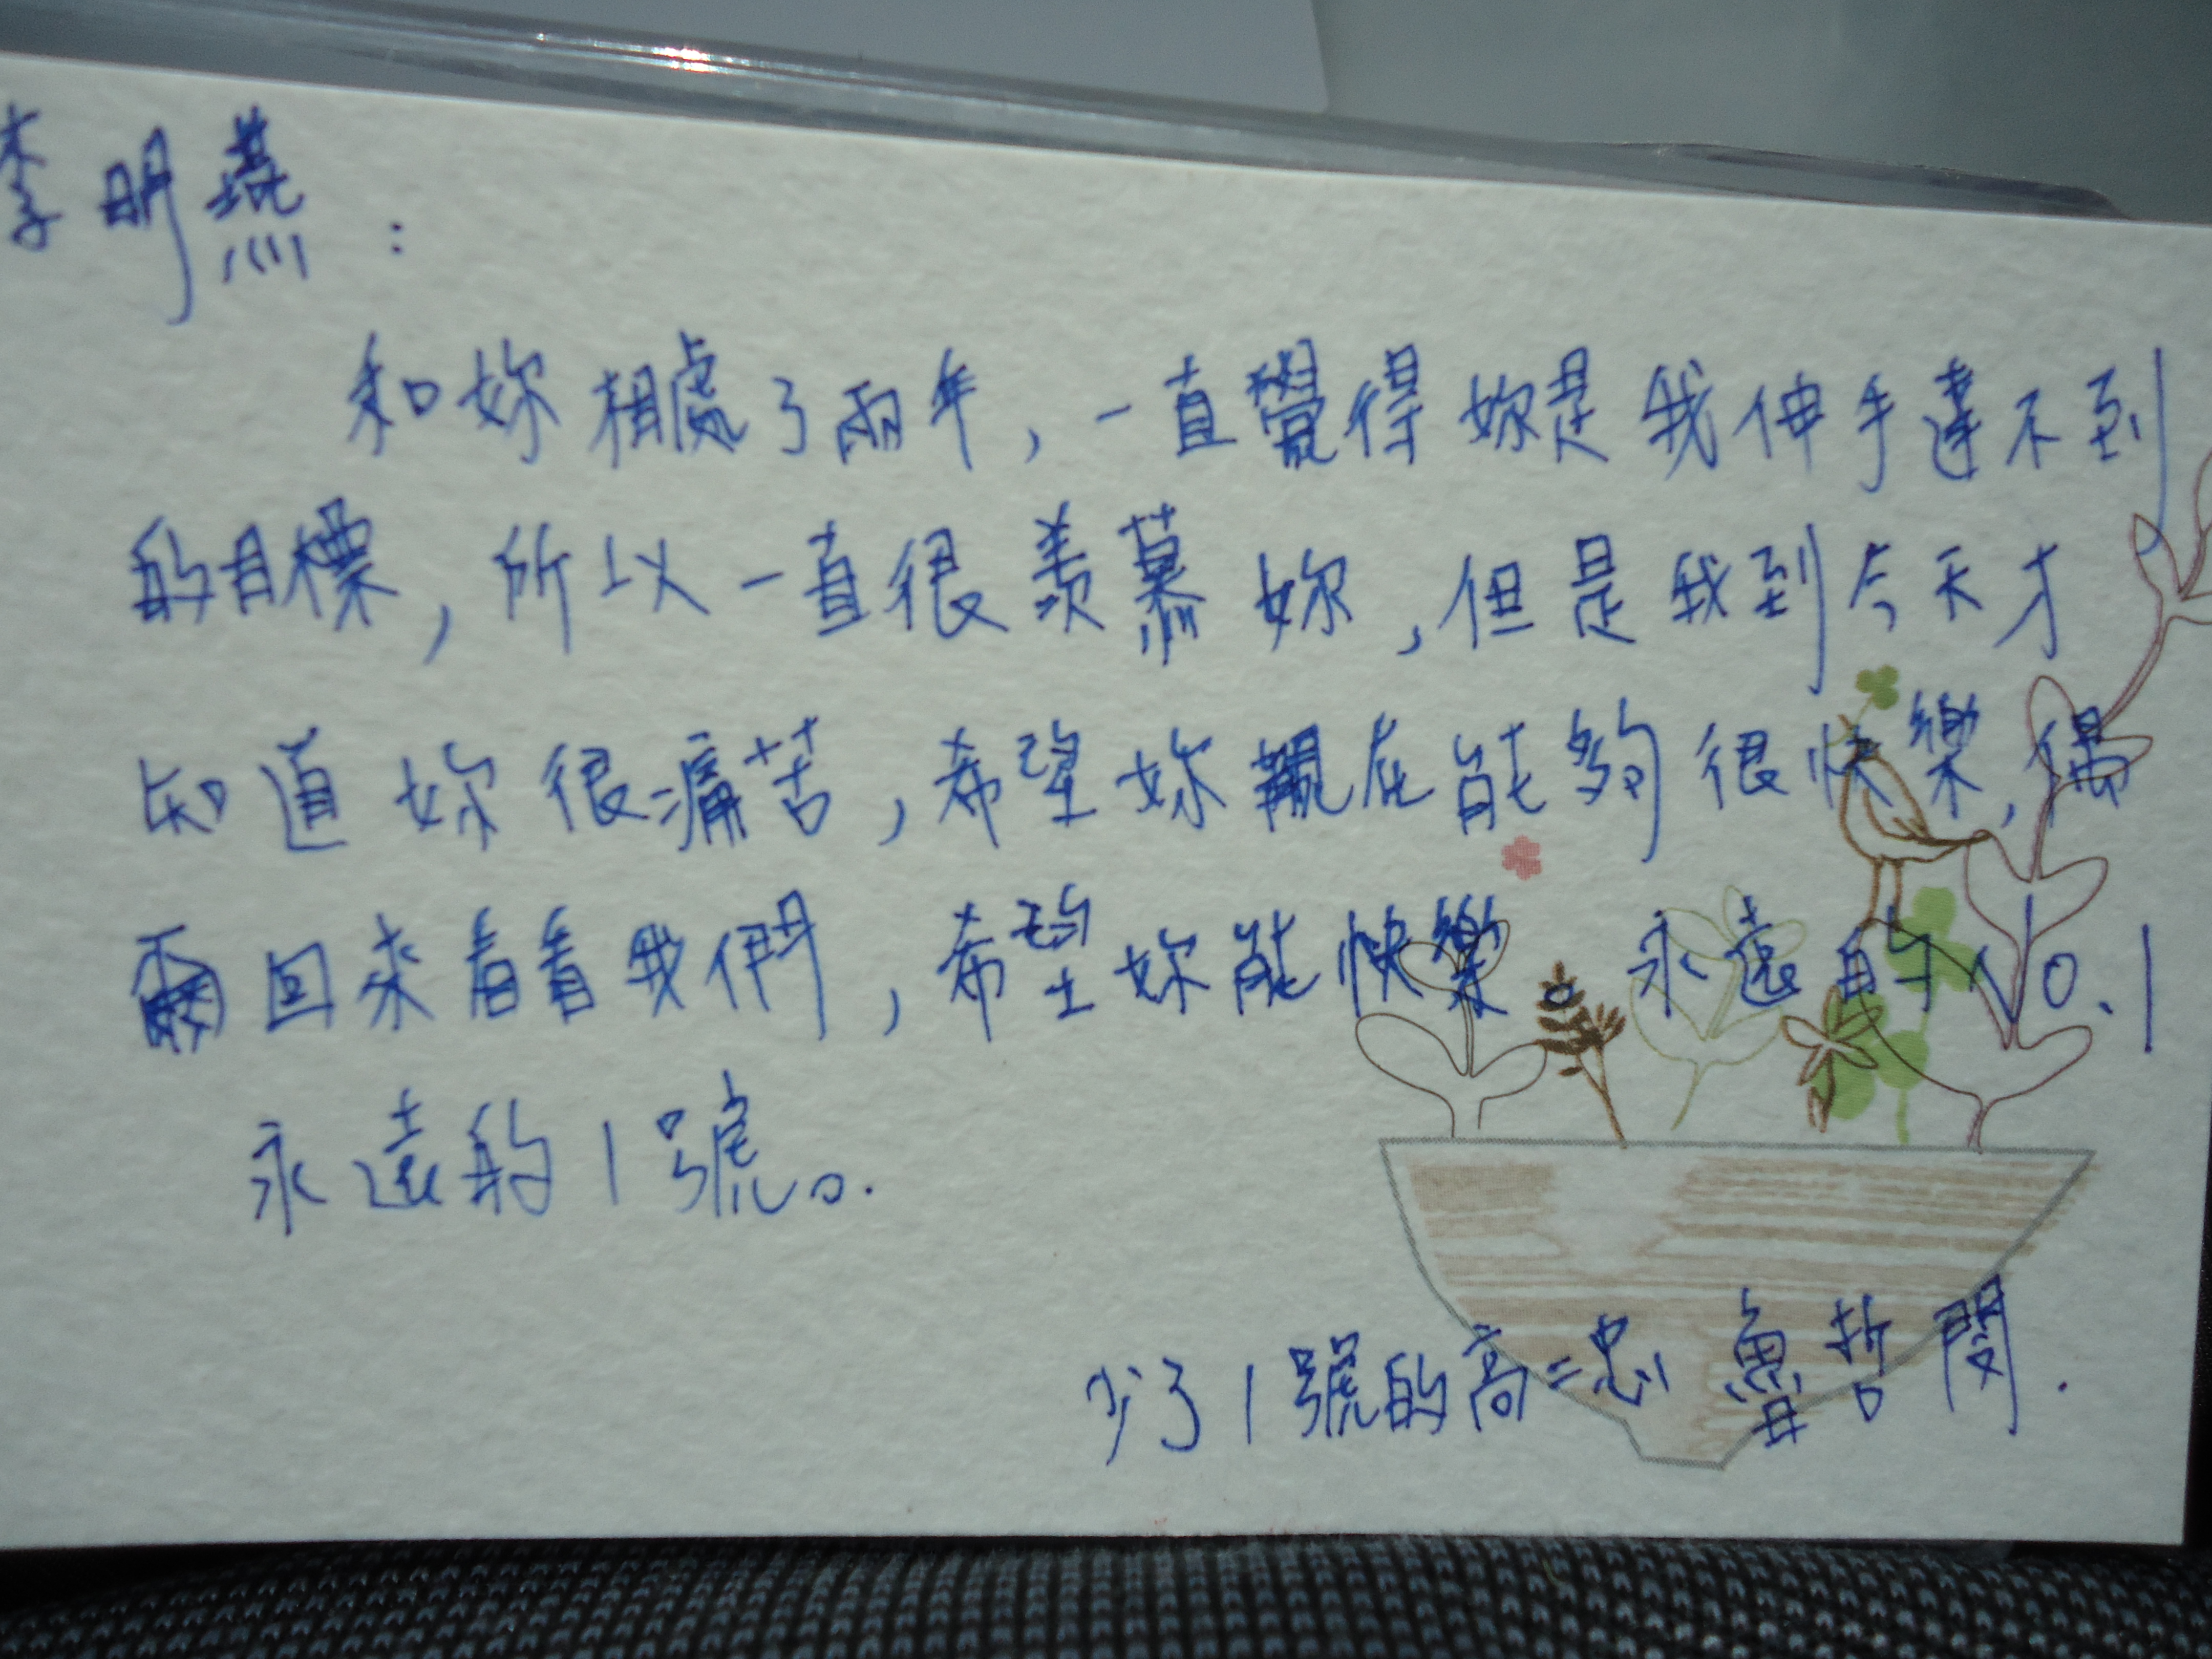 李明燕：
和妳相處了兩年，一直覺得妳是我伸手達不到
的目標，所以一直很羨慕妳，但是我到今天才
知道妳很痛苦，希望妳現在能夠很快樂，偶
爾回來看看我們，希望妳能快樂。永遠的NO.1
永遠的1號。.
少了1號的高二忠 魯哲閔.